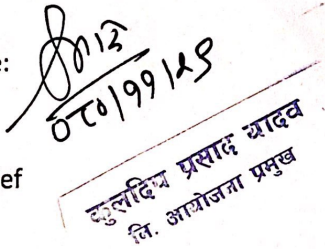 :
०८०।११।२९
ef
कुलदिप प्रसाद यादव
नि. आयोजना प्रमुख